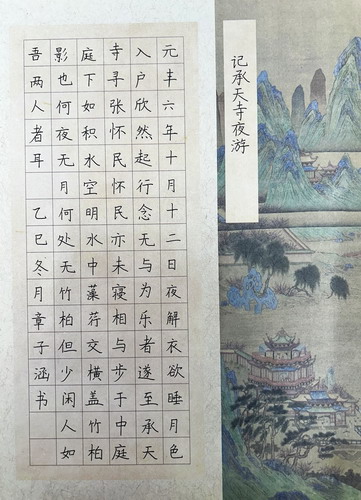 记承天寺夜游
元丰六年十月十二日夜解衣欲睡月色
入户欣然起行念无与为乐者遂至承天
寺寻张怀民怀民亦未寝相与步于中庭
庭下如积水空明水中藻荇交横盖竹柏
影也何夜无月何处无竹柏但少闲人如
吾两人者耳 乙巳冬月章子涵书